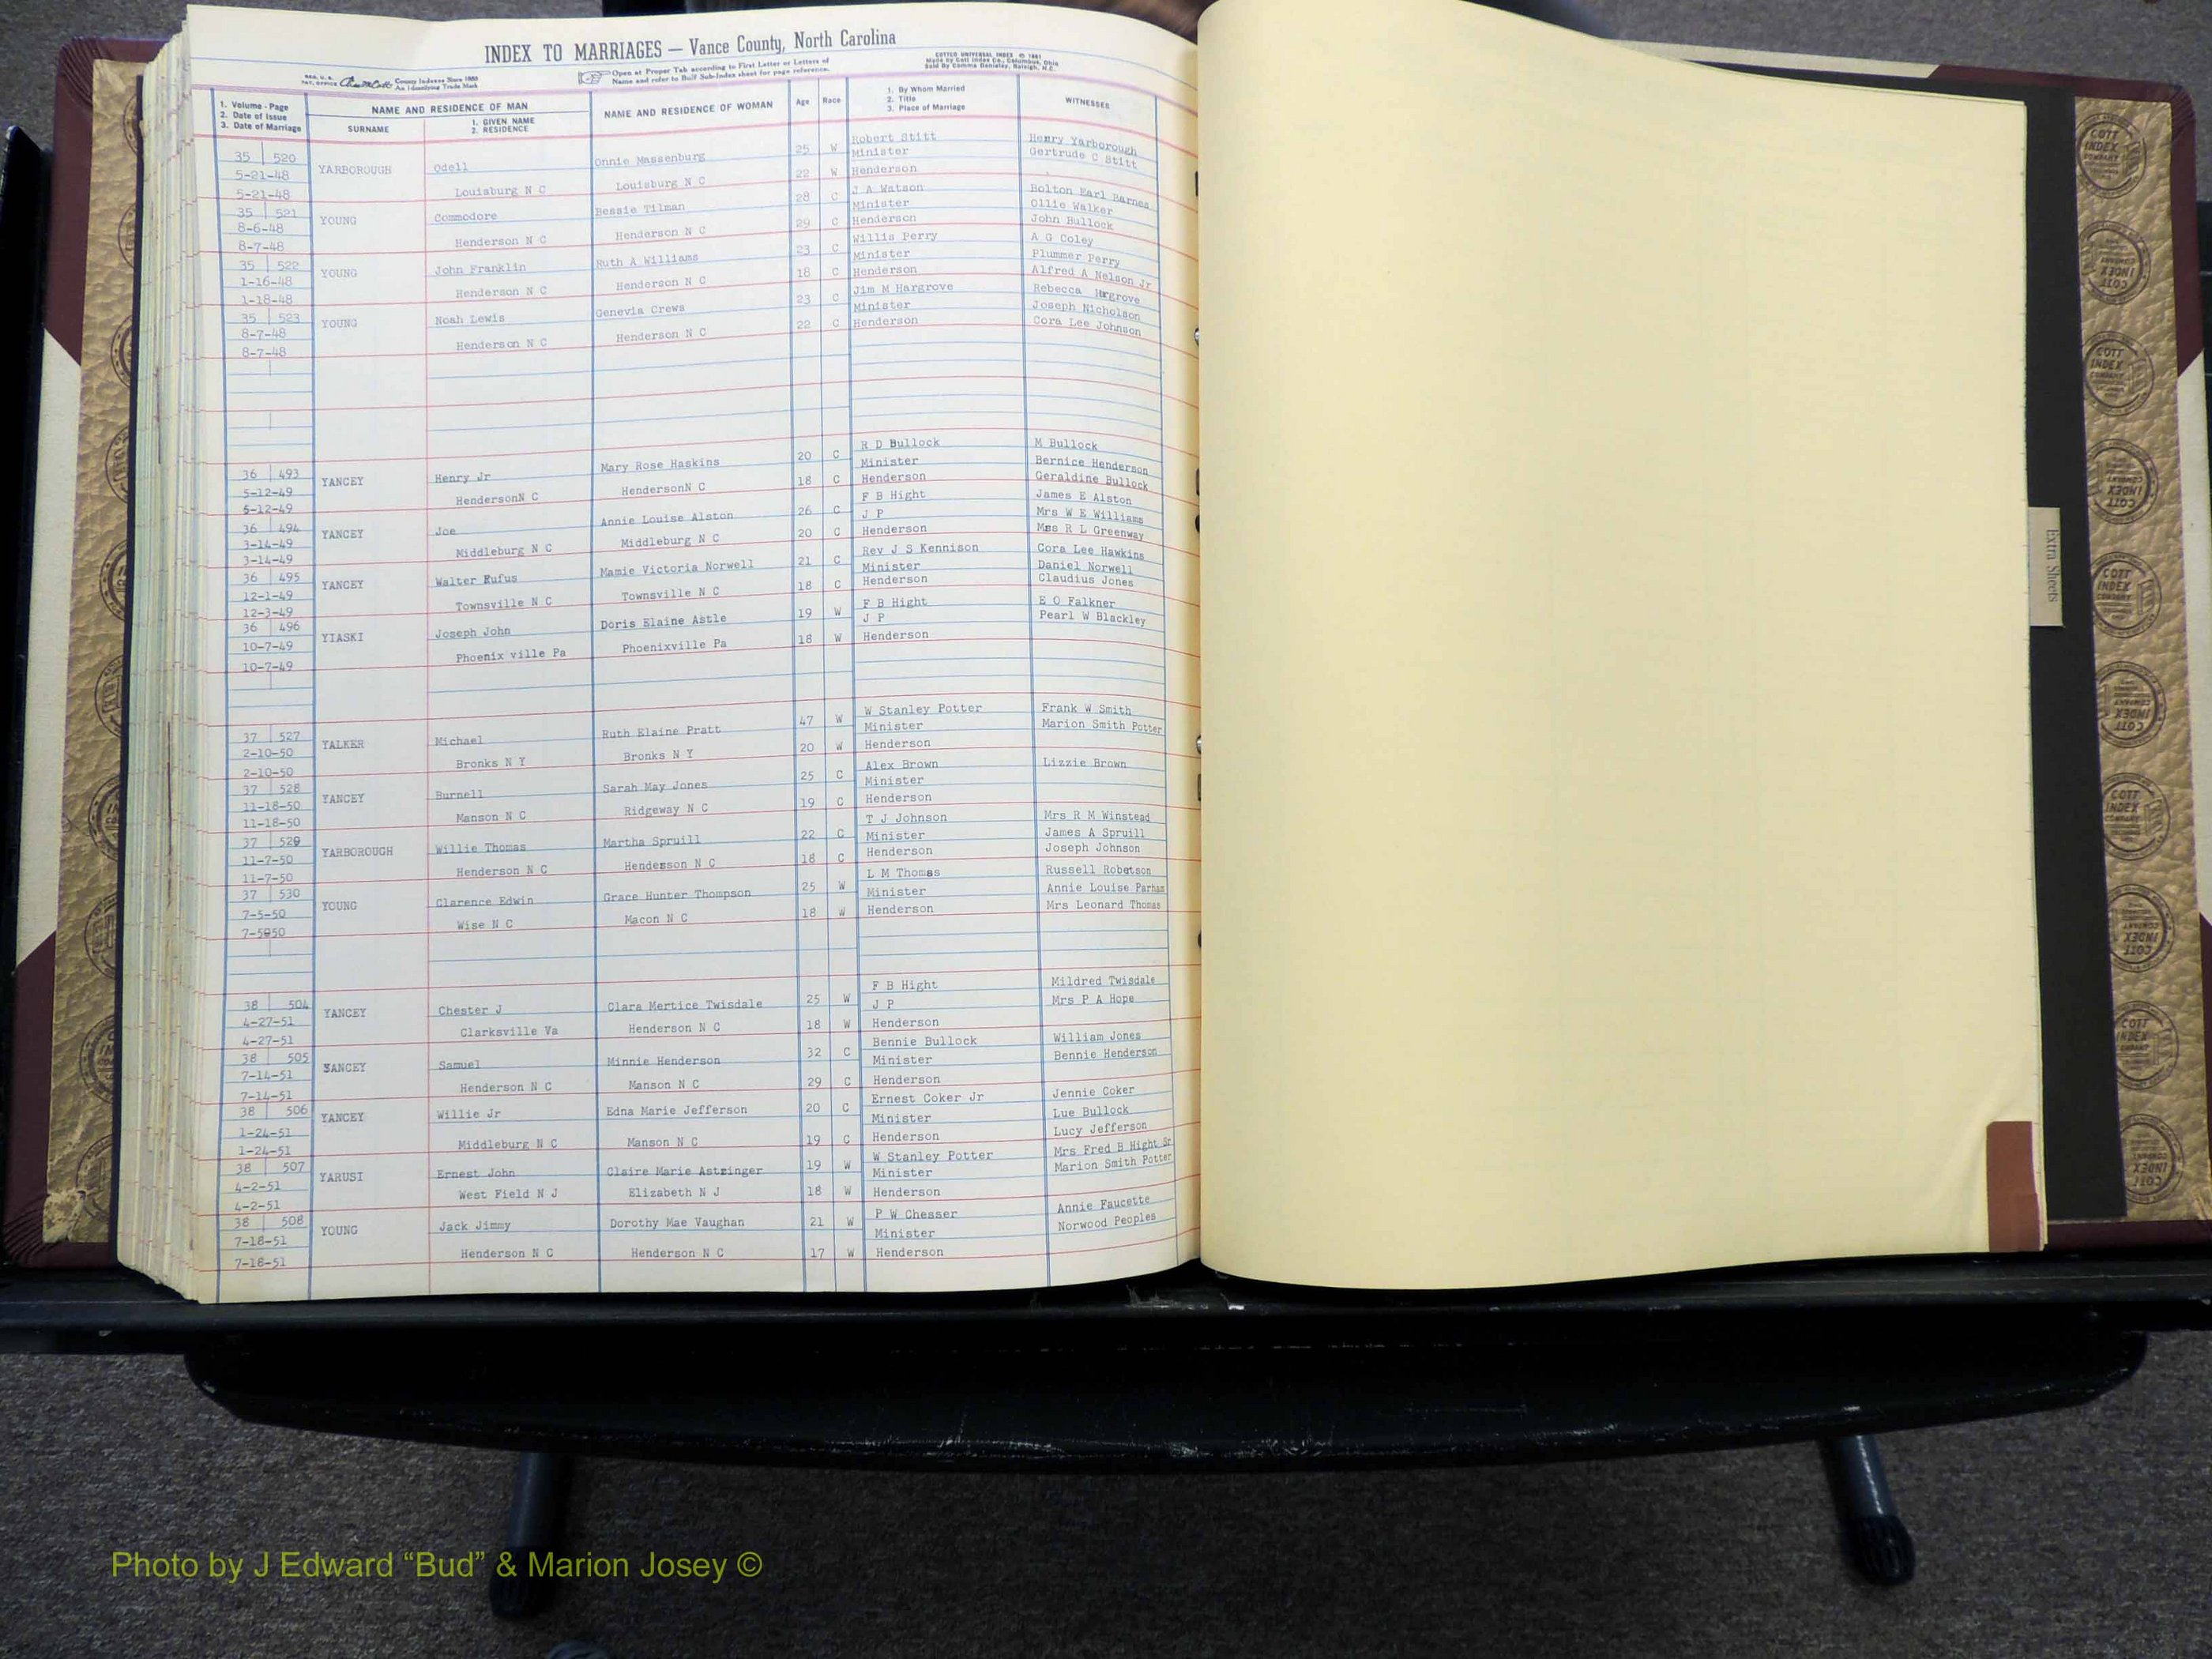 INDEX TO MARRIAGES — Vance County, North Carolina
REG. U. S. PAT. OFFICE County Indexes Since 1888 An Identifying Trade Mark
Open at Proper Tab according to First Letter or Letters of
Name and refer to Buff Sub-Index sheet for page reference.
COTTCO UNIVERSAL INDEX
Made by Cott Index Co., Columbus, Ohio
1. Volume - Page
2. Date of Issue
3. Date of Marriage
NAME AND RESIDENCE OF MAN
SURNAME
1. GIVEN NAME
2. RESIDENCE
NAME AND RESIDENCE OF WOMAN
Age
Race
1. By Whom Married
2. Title
3. Place of Marriage
WITNESSES
35 520 YARBOROUGH Odell Onnie Massenburg 25 W Robert Stitt Henry Yarborough
5-21-48 Louisburg N C Louisburg N C 22 W Minister Gertrude C Stitt
5-21-48 Henderson
35 521 YOUNG Commodore Bessie Tilman 28 C J A Watson Bolton Earl Barnes
8-6-48 Henderson N C Henderson N C 29 C Minister Ollie Walker
8-7-48 Henderson John Bullock
35 522 YOUNG John Franklin Ruth A Williams 23 C Willis Perry A G Coley
1-16-48 Henderson N C Henderson N C 18 C Minister Plummer Perry
1-18-48 Henderson Alfred A Nelson Jr
35 523 YOUNG Noah Lewis Genevia Crews 23 C Jim M Hargrove Rebecca Hargrove
8-7-48 Henderson N C Henderson N C 22 C Minister Joseph Nicholson
8-7-48 Henderson Cora Lee Johnson
36 493 YANCEY Henry Jr Mary Rose Haskins 20 C R D Bullock M Bullock
5-12-49 HendersonN C HendersonN C 18 C Minister Bernice Henderson
5-12-49 Henderson Geraldine Bullock
36 494 YANCEY Joe Annie Louise Alston 26 C F B Hight James E Alston
3-14-49 Middleburg N C Middleburg N C 20 C J P Mrs W E Williams
3-14-49 Henderson Mrs R L Greenway
36 495 YANCEY Walter Rufus Mamie Victoria Norwell 21 C Rev J S Kennison Cora Lee Hawkins
12-1-49 Townsville N C Townsville N C 18 C Minister Daniel Norwell
12-3-49 Henderson Claudius Jones
36 496 YIASKI Joseph John Doris Elaine Astle 19 W F B Hight E O Falkner
10-7-49 Phoenix ville Pa Phoenixville Pa 18 W J P Pearl W Blackley
10-7-49 Henderson
37 527 YALKER Michael Ruth Elaine Pratt 47 W W Stanley Potter Frank W Smith
2-10-50 Bronks N Y Bronks N Y 20 W Minister Marion Smith Potter
2-10-50 Henderson
37 528 YANCEY Burnell Sarah May Jones 25 C Alex Brown Lizzie Brown
11-18-50 Manson N C Ridgeway N C 19 C Minister
11-18-50 Henderson
37 529 YARBOROUGH Willie Thomas Martha Spruill 22 C T J Johnson Mrs R M Winstead
11-7-50 Henderson N C Henderson N C 18 C Minister James A Spruill
11-7-50 Henderson Joseph Johnson
37 530 YOUNG Clarence Edwin Grace Hunter Thompson 25 W L M Thomas Russell Robetson
7-5-50 Wise N C Macon N C 18 W Minister Annie Louise Parham
7-5950 Henderson Mrs Leonard Thomas
38 504 YANCEY Chester J Clara Mertice Twisdale 25 W F B Hight Mildred Twisdale
4-27-51 Clarksville Va Henderson N C 18 W J P Mrs P A Hope
4-27-51 Henderson
38 505 SANCEY Samuel Minnie Henderson 32 C Bennie Bullock William Jones
7-14-51 Henderson N C Manson N C 29 C Minister Bennie Henderson
7-14-51 Henderson
38 506 YANCEY Willie Jr Edna Marie Jefferson 20 C Ernest Coker Jr Jennie Coker
1-24-51 Middleburg N C Manson N C 19 C Minister Lue Bullock
1-24-51 Henderson Lucy Jefferson
38 507 YARUSI Ernest John Claire Marie Astringer 19 W W Stanley Potter Mrs Fred B Hight Sr
4-2-51 West Field N J Elizabeth N J 18 W Minister Marion Smith Potter
4-2-51 Henderson
38 508 YOUNG Jack Jimmy Dorothy Mae Vaughan 21 W P W Chesser Annie Faucette
7-18-51 Henderson N C Henderson N C 17 W Minister Norwood Peoples
7-18-51 Henderson
Extra Sheets
COTT INDEX COMPANY
Photo by J Edward “Bud” & Marion Josey ©